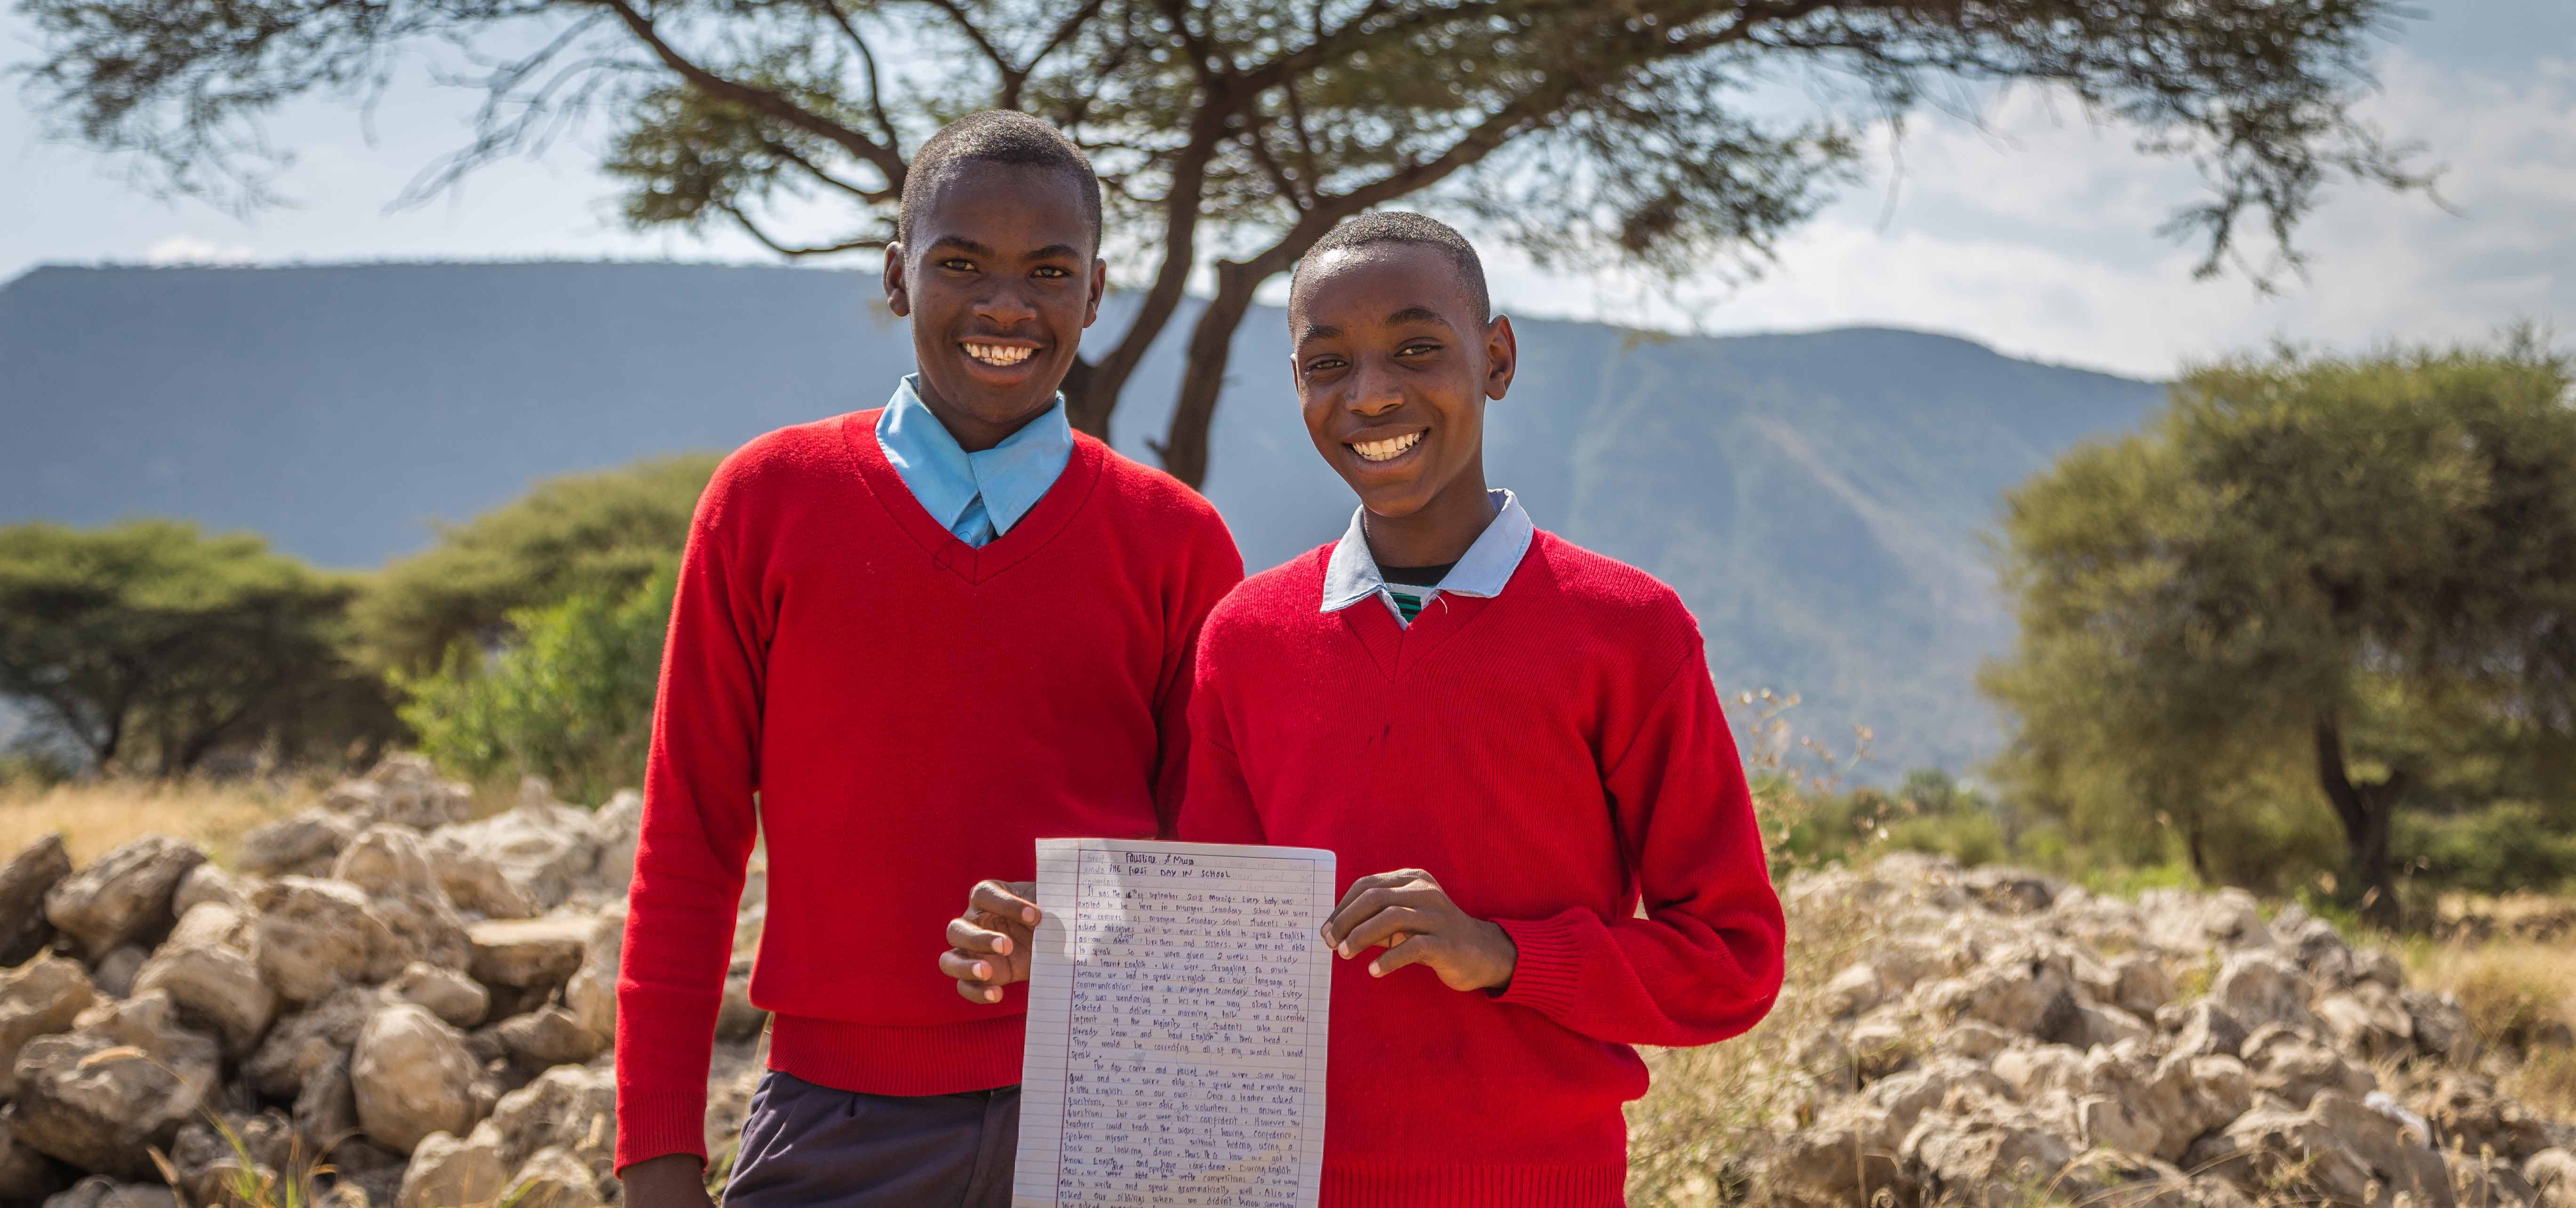 Faustine & Musa
THE FIRST DAY IN SCHOOL
It was the 16th of September 2013 Every body was
excited to be here in Mungere Secondary School. We were
new comers of Mungere Secondary School students. We
asked ourselves will we ever be able to speak English
as our brothers and sisters. We were not able
to speak so we were given 2 weeks to study
and learnt English. We were struggling so much
because we had to speak English as our language of
communication here in Mungere Secondary School. Every
body was wondering in his or her way about being
selected to deliver a morning talk in a assemble
infront of the Majority of students who are
already know and have English in their head.
They would be correcting all of my words I would
speak.
The day came and passed, we were some how
good and we were able to speak and write even
a little English on our own. Once a teacher asked
questions, we were able to volunteer to answer the
questions but we were not confident. However the
teachers could teach the ways of having confidence,
spoken infront of class without hiding using a
book or looking down, thus is how we got to
know English and have confidence. During English
class, we did spelling competitions so we were
able to write and speak grammatically well. Also we
asked our siblings when we didn't know something
We asked